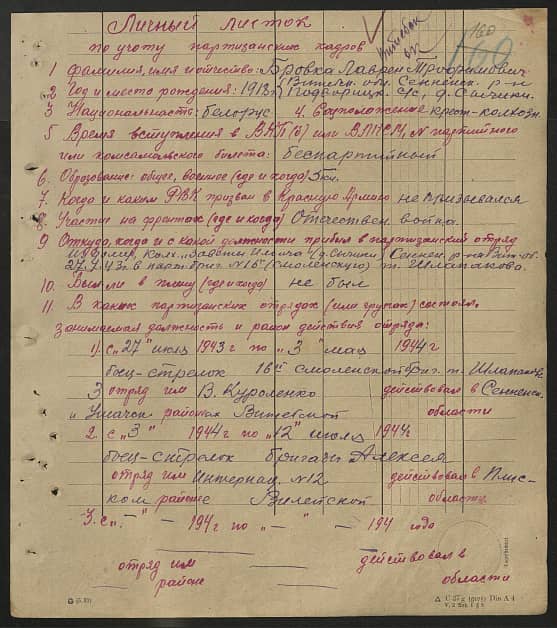 Личный листок
по учоту партизанских кадров
Витебск
обл
160
160
1 Фамилия, имя и отчество: Бровка Лаврен Трофимович
2 Год и место рождения: 1912 г. Витебск. обл. Сеннен. р-н
Подворицк. с/с, д.
3 Национальность: белорус 4. Соцположение крест-колхозн.
5 Время вступления в ВКП(б) или ВЛКСМ, N партийного
или комсомольского билета: беспартийный
6. Образование: общее, военное (где и когда) 5 кл.
7. Когда и каким РВК призван в Красную Армию не призывался
8. Участие на фронтах (где и когда) Отечествен. война.
9 Откуда, когда и с какой должности прибыл в партизанский отряд
колх. Заветы Ильича Сеннен. р-на Вит. об.
27.7.43г. в парт. бриг. N 16 (Смоленскую) т. Шлапакова.
10. Был ли в плену (где и когда) не был
11. В каких партизанских отрядах (или группах) состоял,
занимаемая должность и район действия отряда:
1). с „27" июля 1943 г по „3" мая 1944 г
боец-стрелок 16й Смоленской бриг. т. Шлапакова
3 отряд им В. Куроленко действовал в Сеннен.
и Ушачск. районах Витебской области
2. с „3" 1944 г по „12" июля 1944 г
боец-стрелок бригады Алексея
отряд им Интернац. N 12 действовал в Плис-
ком районе Вилейской области
3. с „ - " - 194 г по „ - " - 194 года
отряд им - действовал в
районе области
C 27 g (9101) Din A 4